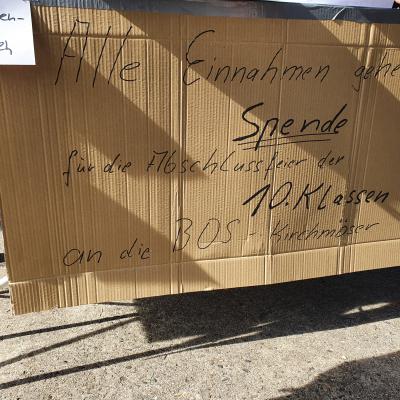 Alle Einnahmen gehe
Spende
für die Abschlussfeier der
10. Klassen
an die BOS - Kirchmöser